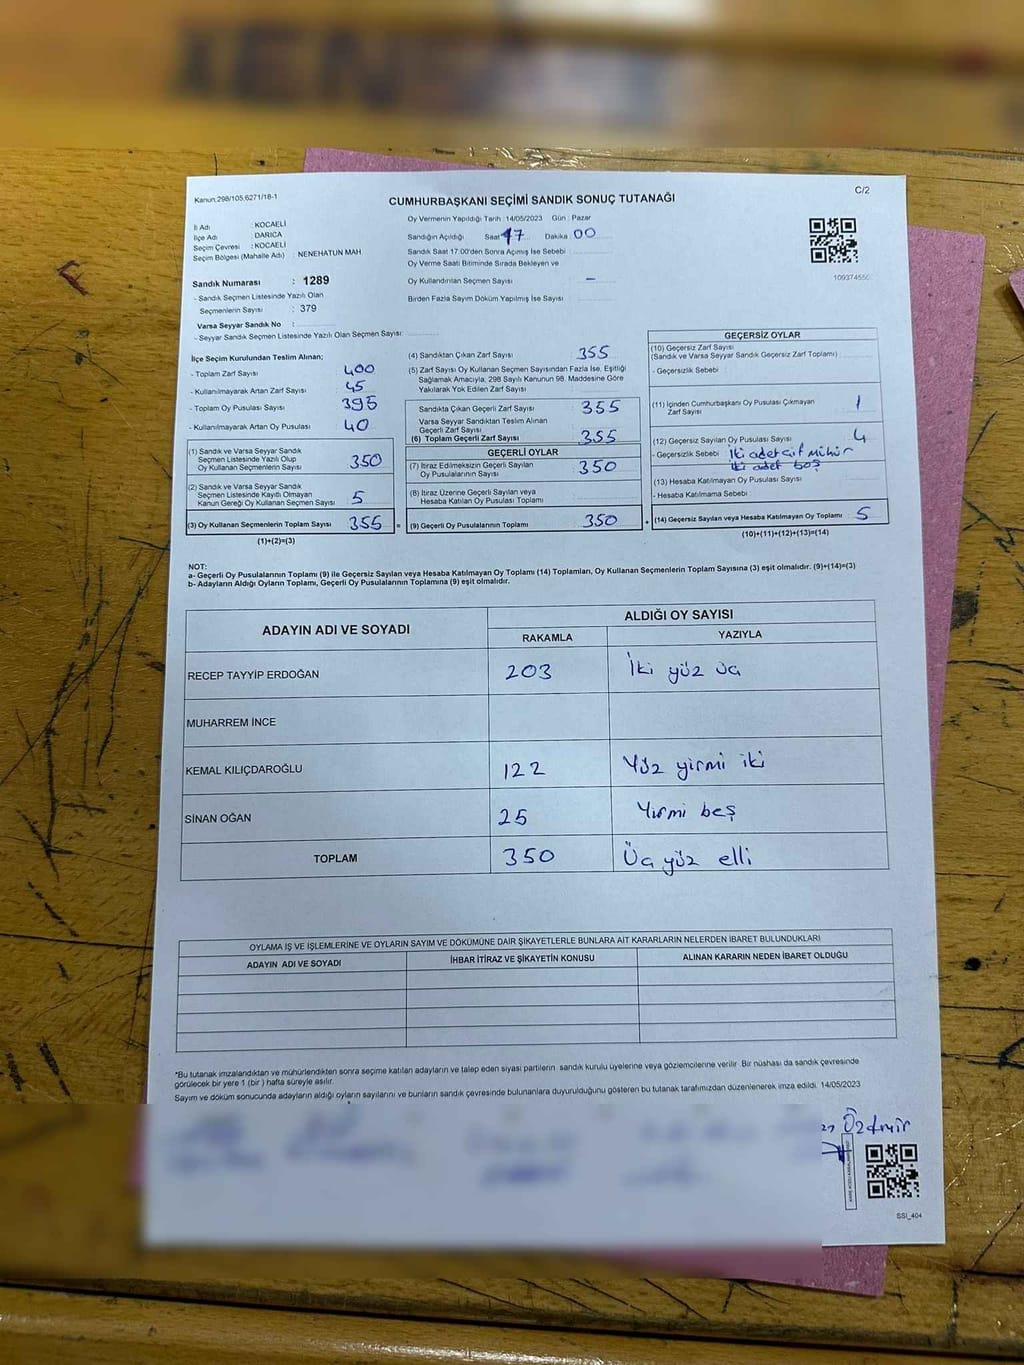 Kanun:298/105.6271/18-1
CUMHURBAŞKANI SEÇİMİ SANDIK SONUÇ TUTANAĞI
C/2
İl Adı : KOCAELİ
İlçe Adı : DARICA
Seçim Çevresi : KOCAELİ
Seçim Bölgesi (Mahalle Adı) NENEHATUN MAH
Oy Vermenin Yapıldığı Tarih : 14/05/2023 Gün : Pazar
Sandığın Açıldığı Saat 17 Dakika 00
Sandık Saat 17:00'den Sonra Açımış İse Sebebi
Oy Verme Saati Bitiminde Sırada Bekleyen ve
Oy Kullandırılan Seçmen Sayısı –
Birden Fazla Sayım Döküm Yapılmış İse Sayısı
Sandık Numarası : 1289
- Sandık Seçmen Listesinde Yazılı Olan
Seçmenlerin Sayısı : 379
Varsa Seyyar Sandık No :
- Seyyar Sandık Seçmen Listesinde Yazılı Olan Seçmen Sayısı:
İlçe Seçim Kurulundan Teslim Alınan;
- Toplam Zarf Sayısı 400
- Kullanılmayarak Artan Zarf Sayısı 45
- Toplam Oy Pusulası Sayısı 395
- Kullanılmayarak Artan Oy Pusulası 40
(1) Sandık ve Varsa Seyyar Sandık
Seçmen Listesinde Yazılı Olup
Oy Kullanan Seçmenlerin Sayısı 350
(2) Sandık ve Varsa Seyyar Sandık
Seçmen Listesinde Kayıtlı Olmayan
Kanun Gereği Oy Kullanan Seçmen Sayısı 5
(3) Oy Kullanan Seçmenlerin Toplam Sayısı 355 =
(1)+(2)=(3)
(4) Sandıktan Çıkan Zarf Sayısı 355
(5) Zarf Sayısı Oy Kullanan Seçmen Sayısından Fazla İse, Eşitliği
Sağlamak Amacıyla, 298 Sayılı Kanunun 98. Maddesine Göre
Yakılarak Yok Edilen Zarf Sayısı
Sandıkta Çıkan Geçerli Zarf Sayısı 355
Varsa Seyyar Sandıktan Teslim Alınan
Geçerli Zarf Sayısı
(6) Toplam Geçerli Zarf Sayısı 355
GEÇERLİ OYLAR
(7) İtiraz Edilmeksizin Geçerli Sayılan
Oy Pusulalarının Sayısı 350
(8) İtiraz Üzerine Geçerli Sayılan veya
Hesaba Katılan Oy Pusulası Toplamı
(9) Geçerli Oy Pusulalarının Toplamı 350 +
GEÇERSİZ OYLAR
(10) Geçersiz Zarf Sayısı
(Sandık ve Varsa Seyyar Sandık Geçersiz Zarf Toplamı)
- Geçersizlik Sebebi
(11) İçinden Cumhurbaşkanı Oy Pusulası Çıkmayan
Zarf Sayısı 1
(12) Geçersiz Sayılan Oy Pusulası Sayısı 4
- Geçersizlik Sebebi İki adet çift mühür
iki adet boş
(13) Hesaba Katılmayan Oy Pusulası Sayısı
- Hesaba Katılmama Sebebi
(14) Geçersiz Sayılan veya Hesaba Katılmayan Oy Toplamı 5
(10)+(11)+(12)+(13)=(14)
NOT:
a- Geçerli Oy Pusulalarının Toplamı (9) ile Geçersiz Sayılan veya Hesaba Katılmayan Oy Toplamı (14) Toplamları, Oy Kullanan Seçmenlerin Toplam Sayısına (3) eşit olmalıdır. (9)+(14)=(3)
b- Adayların Aldığı Oyların Toplamı, Geçerli Oy Pusulalarının Toplamına (9) eşit olmalıdır.
ADAYIN ADI VE SOYADI
ALDIĞI OY SAYISI
RAKAMLA YAZIYLA
RECEP TAYYİP ERDOĞAN 203 İki yüz üç
MUHARREM İNCE
KEMAL KILIÇDAROĞLU 122 Yüz yirmi iki
SİNAN OĞAN 25 Yirmi beş
TOPLAM 350 Üç yüz elli
OYLAMA İŞ VE İŞLEMLERİNE VE OYLARIN SAYIM VE DÖKÜMÜNE DAİR ŞİKAYETLERLE BUNLARA AİT KARARLARIN NELERDEN İBARET BULUNDUKLARI
ADAYIN ADI VE SOYADI İHBAR İTİRAZ VE ŞİKAYETİN KONUSU ALINAN KARARIN NEDEN İBARET OLDUĞU
*Bu tutanak imzalandıktan ve mühürlendikten sonra seçime katılan adayların ve talep eden siyasi partilerin sandık kurulu üyelerine veya gözlemcilerine verilir. Bir nüshası da sandık çevresinde
görülecek bir yere 1 (bir) hafta süreyle asılır.
Sayım ve döküm sonucunda adayların aldığı oyların sayılarını ve bunların sandık çevresinde bulunanlara duyurulduğunu gösteren bu tutanak tarafımızdan düzenlenerek imza edildi. 14/05/2023
Özdemir
SSI_404